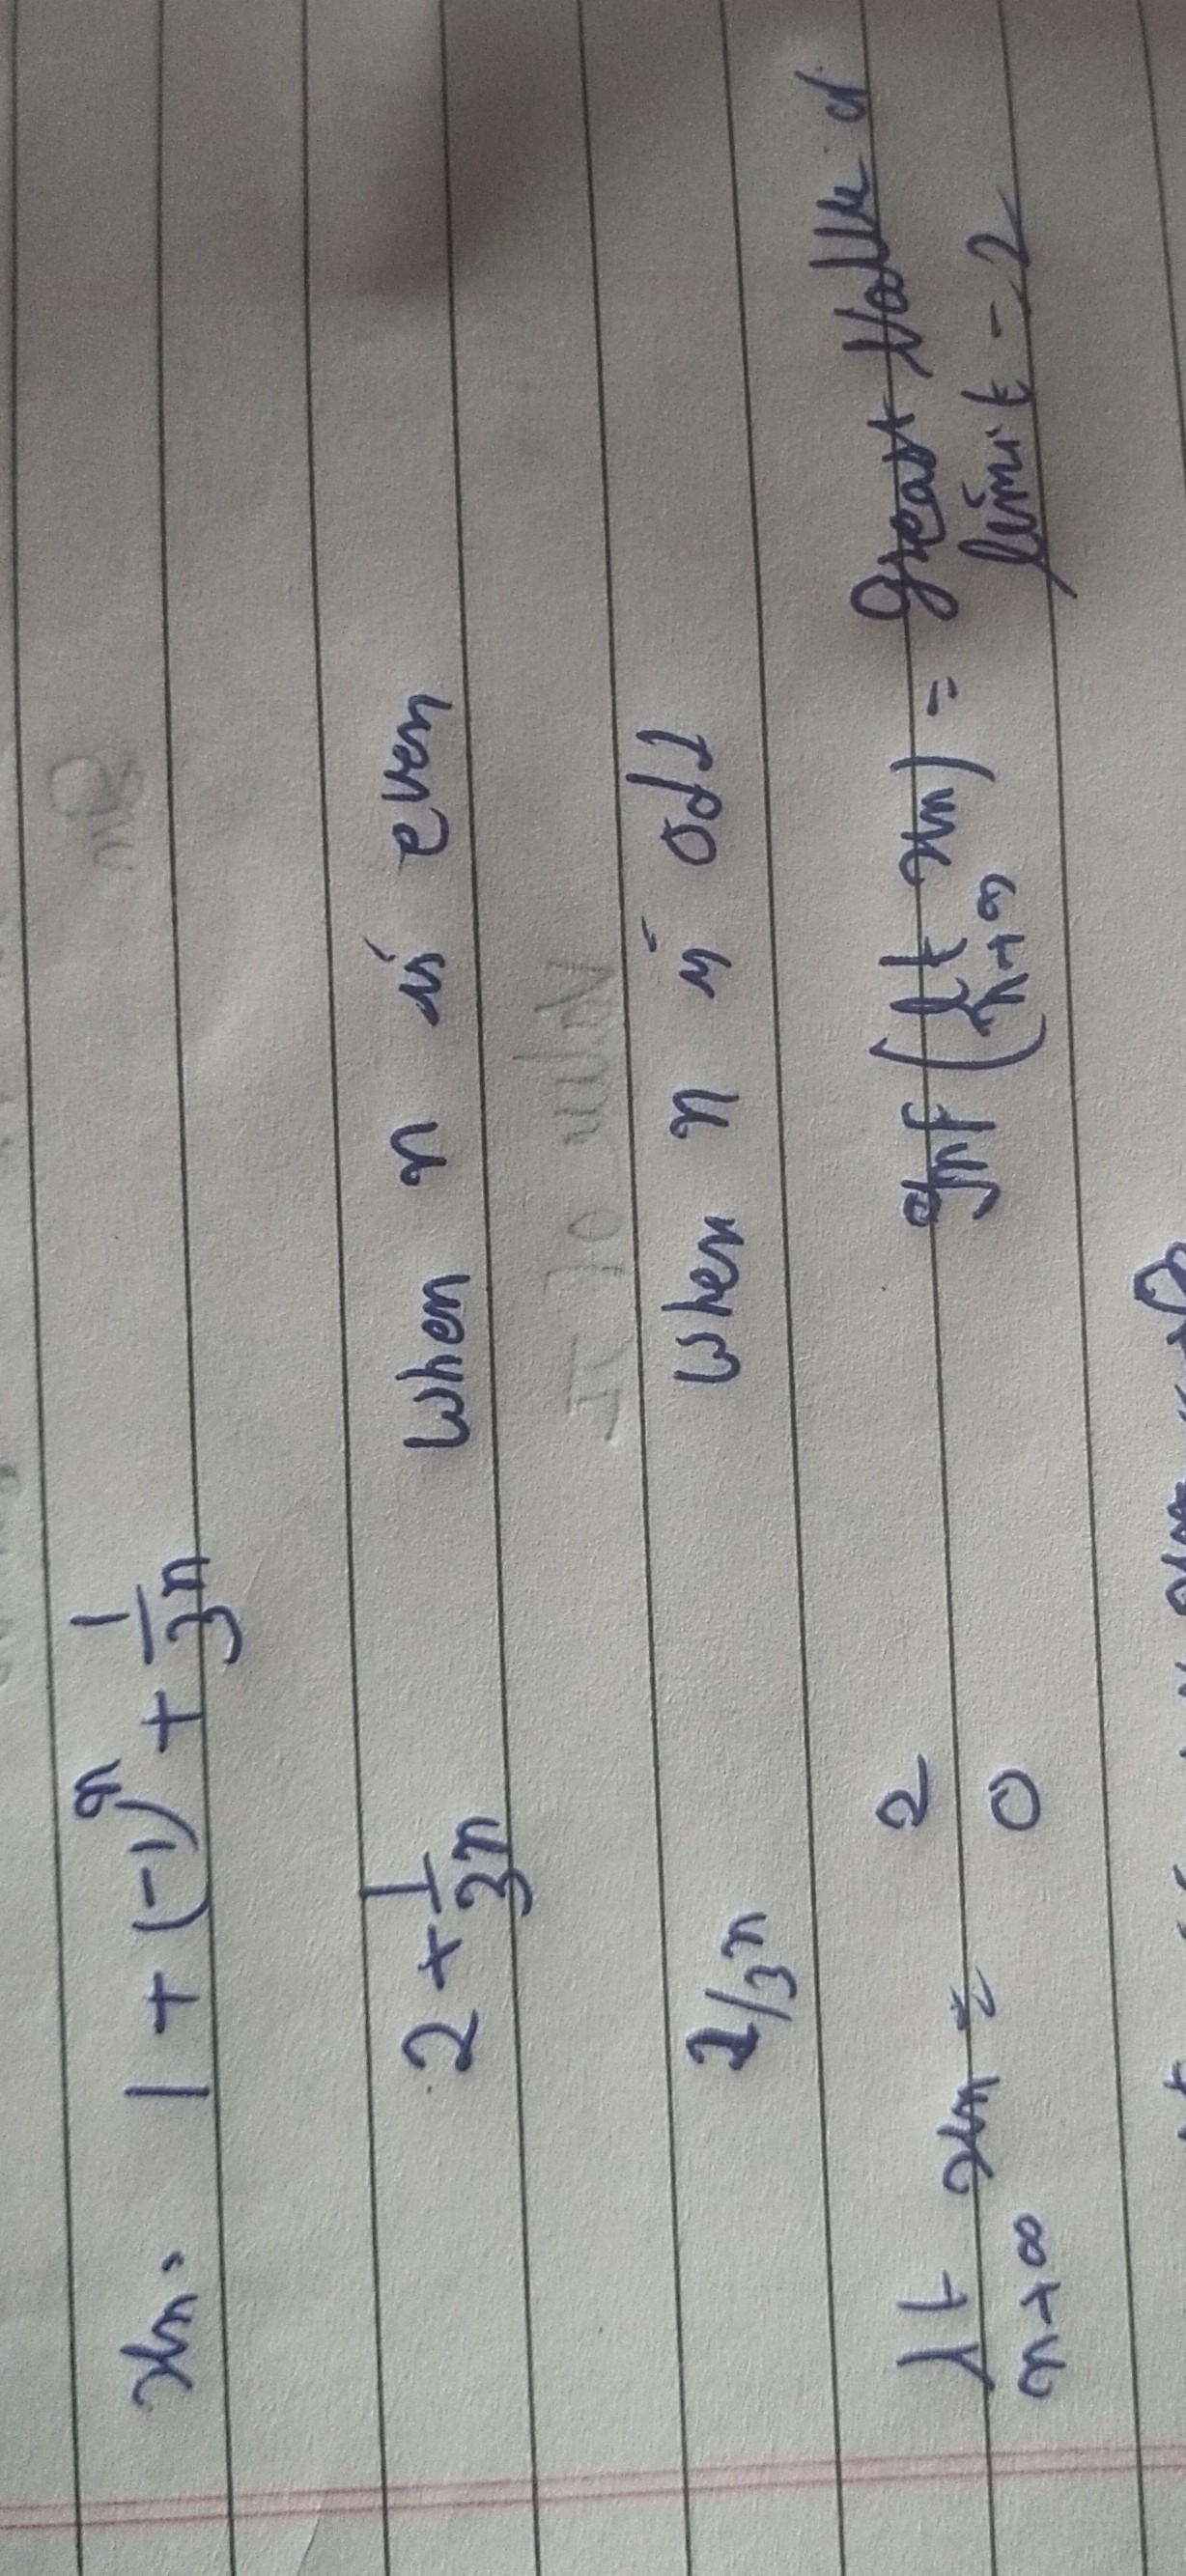 xn = 1 + (-1)^n + 1/3^n
2 + 1/3^n when n is even
1/3^n when n is odd
lt n→∞ xn = 2 0 (lt n→∞ xn) = great value of
limit - 2